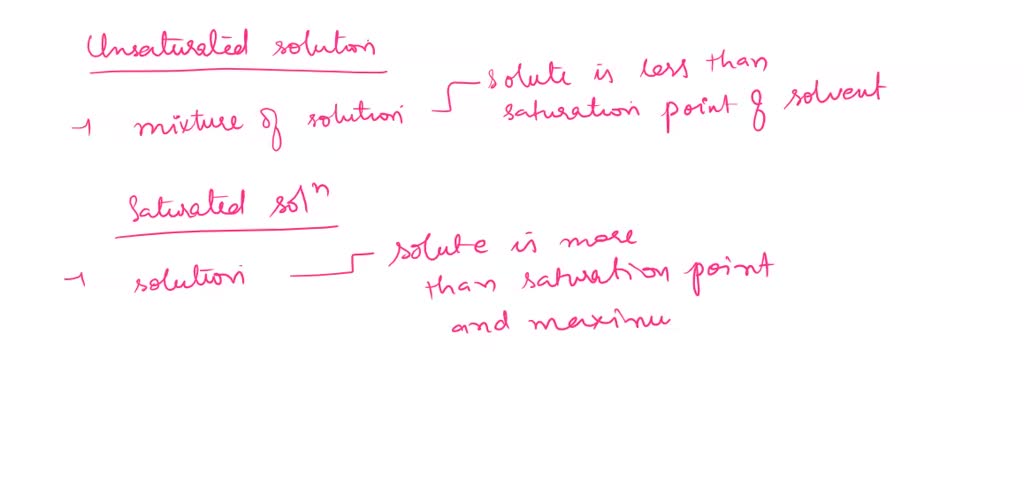 Unsaturated solution
→ mixture of solution
solute is less than
saturation point of solvent
Saturated solⁿ
→ solution
solute is more
than saturation point
and maximu